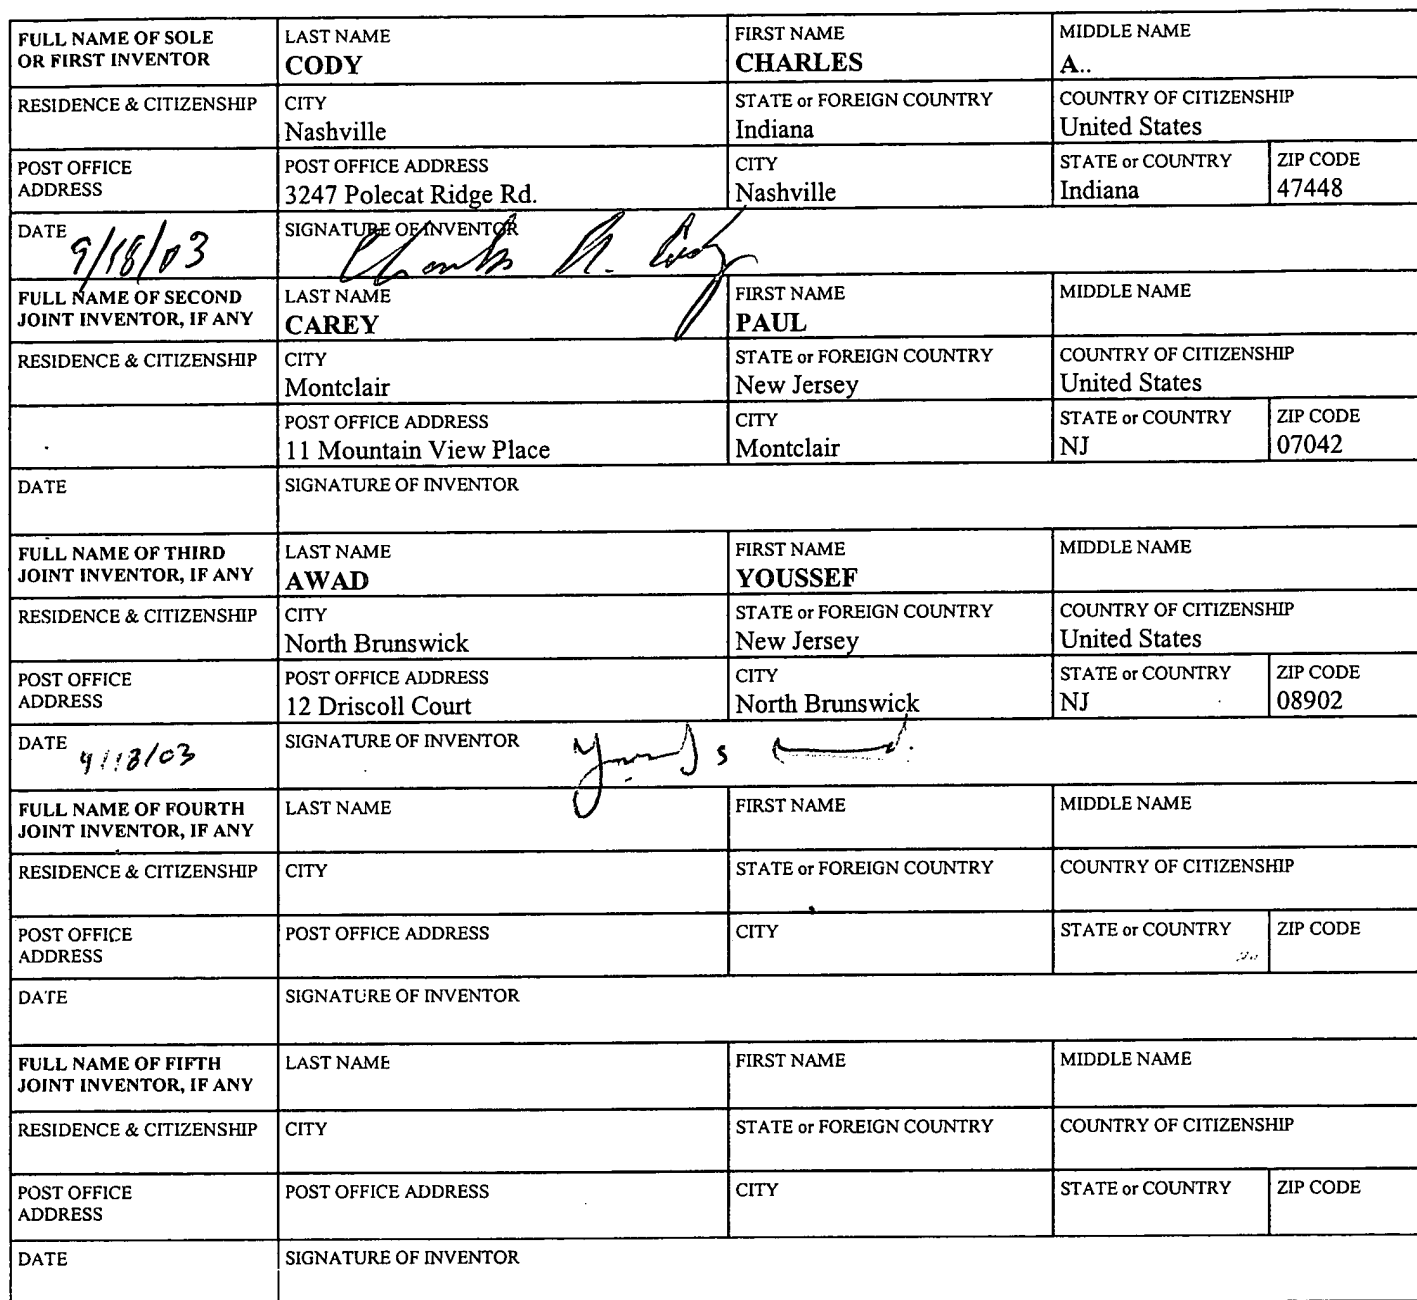 FULL NAME OF SOLE OR FIRST INVENTOR LAST NAME CODY FIRST NAME CHARLES MIDDLE NAME A..
RESIDENCE & CITIZENSHIP CITY Nashville STATE or FOREIGN COUNTRY Indiana COUNTRY OF CITIZENSHIP United States
POST OFFICE ADDRESS POST OFFICE ADDRESS 3247 Polecat Ridge Rd. CITY Nashville STATE or COUNTRY Indiana ZIP CODE 47448
DATE 9/18/03 SIGNATURE OF INVENTOR Charles A. Cody
FULL NAME OF SECOND JOINT INVENTOR, IF ANY LAST NAME CAREY FIRST NAME PAUL MIDDLE NAME
RESIDENCE & CITIZENSHIP CITY Montclair STATE or FOREIGN COUNTRY New Jersey COUNTRY OF CITIZENSHIP United States
POST OFFICE ADDRESS 11 Mountain View Place CITY Montclair STATE or COUNTRY NJ ZIP CODE 07042
DATE SIGNATURE OF INVENTOR
FULL NAME OF THIRD JOINT INVENTOR, IF ANY LAST NAME AWAD FIRST NAME YOUSSEF MIDDLE NAME
RESIDENCE & CITIZENSHIP CITY North Brunswick STATE or FOREIGN COUNTRY New Jersey COUNTRY OF CITIZENSHIP United States
POST OFFICE ADDRESS POST OFFICE ADDRESS 12 Driscoll Court CITY North Brunswick STATE or COUNTRY NJ ZIP CODE 08902
DATE 9/18/03 SIGNATURE OF INVENTOR
FULL NAME OF FOURTH JOINT INVENTOR, IF ANY LAST NAME FIRST NAME MIDDLE NAME
RESIDENCE & CITIZENSHIP CITY STATE or FOREIGN COUNTRY COUNTRY OF CITIZENSHIP
POST OFFICE ADDRESS POST OFFICE ADDRESS CITY STATE or COUNTRY ZIP CODE
DATE SIGNATURE OF INVENTOR
FULL NAME OF FIFTH JOINT INVENTOR, IF ANY LAST NAME FIRST NAME MIDDLE NAME
RESIDENCE & CITIZENSHIP CITY STATE or FOREIGN COUNTRY COUNTRY OF CITIZENSHIP
POST OFFICE ADDRESS POST OFFICE ADDRESS CITY STATE or COUNTRY ZIP CODE
DATE SIGNATURE OF INVENTOR